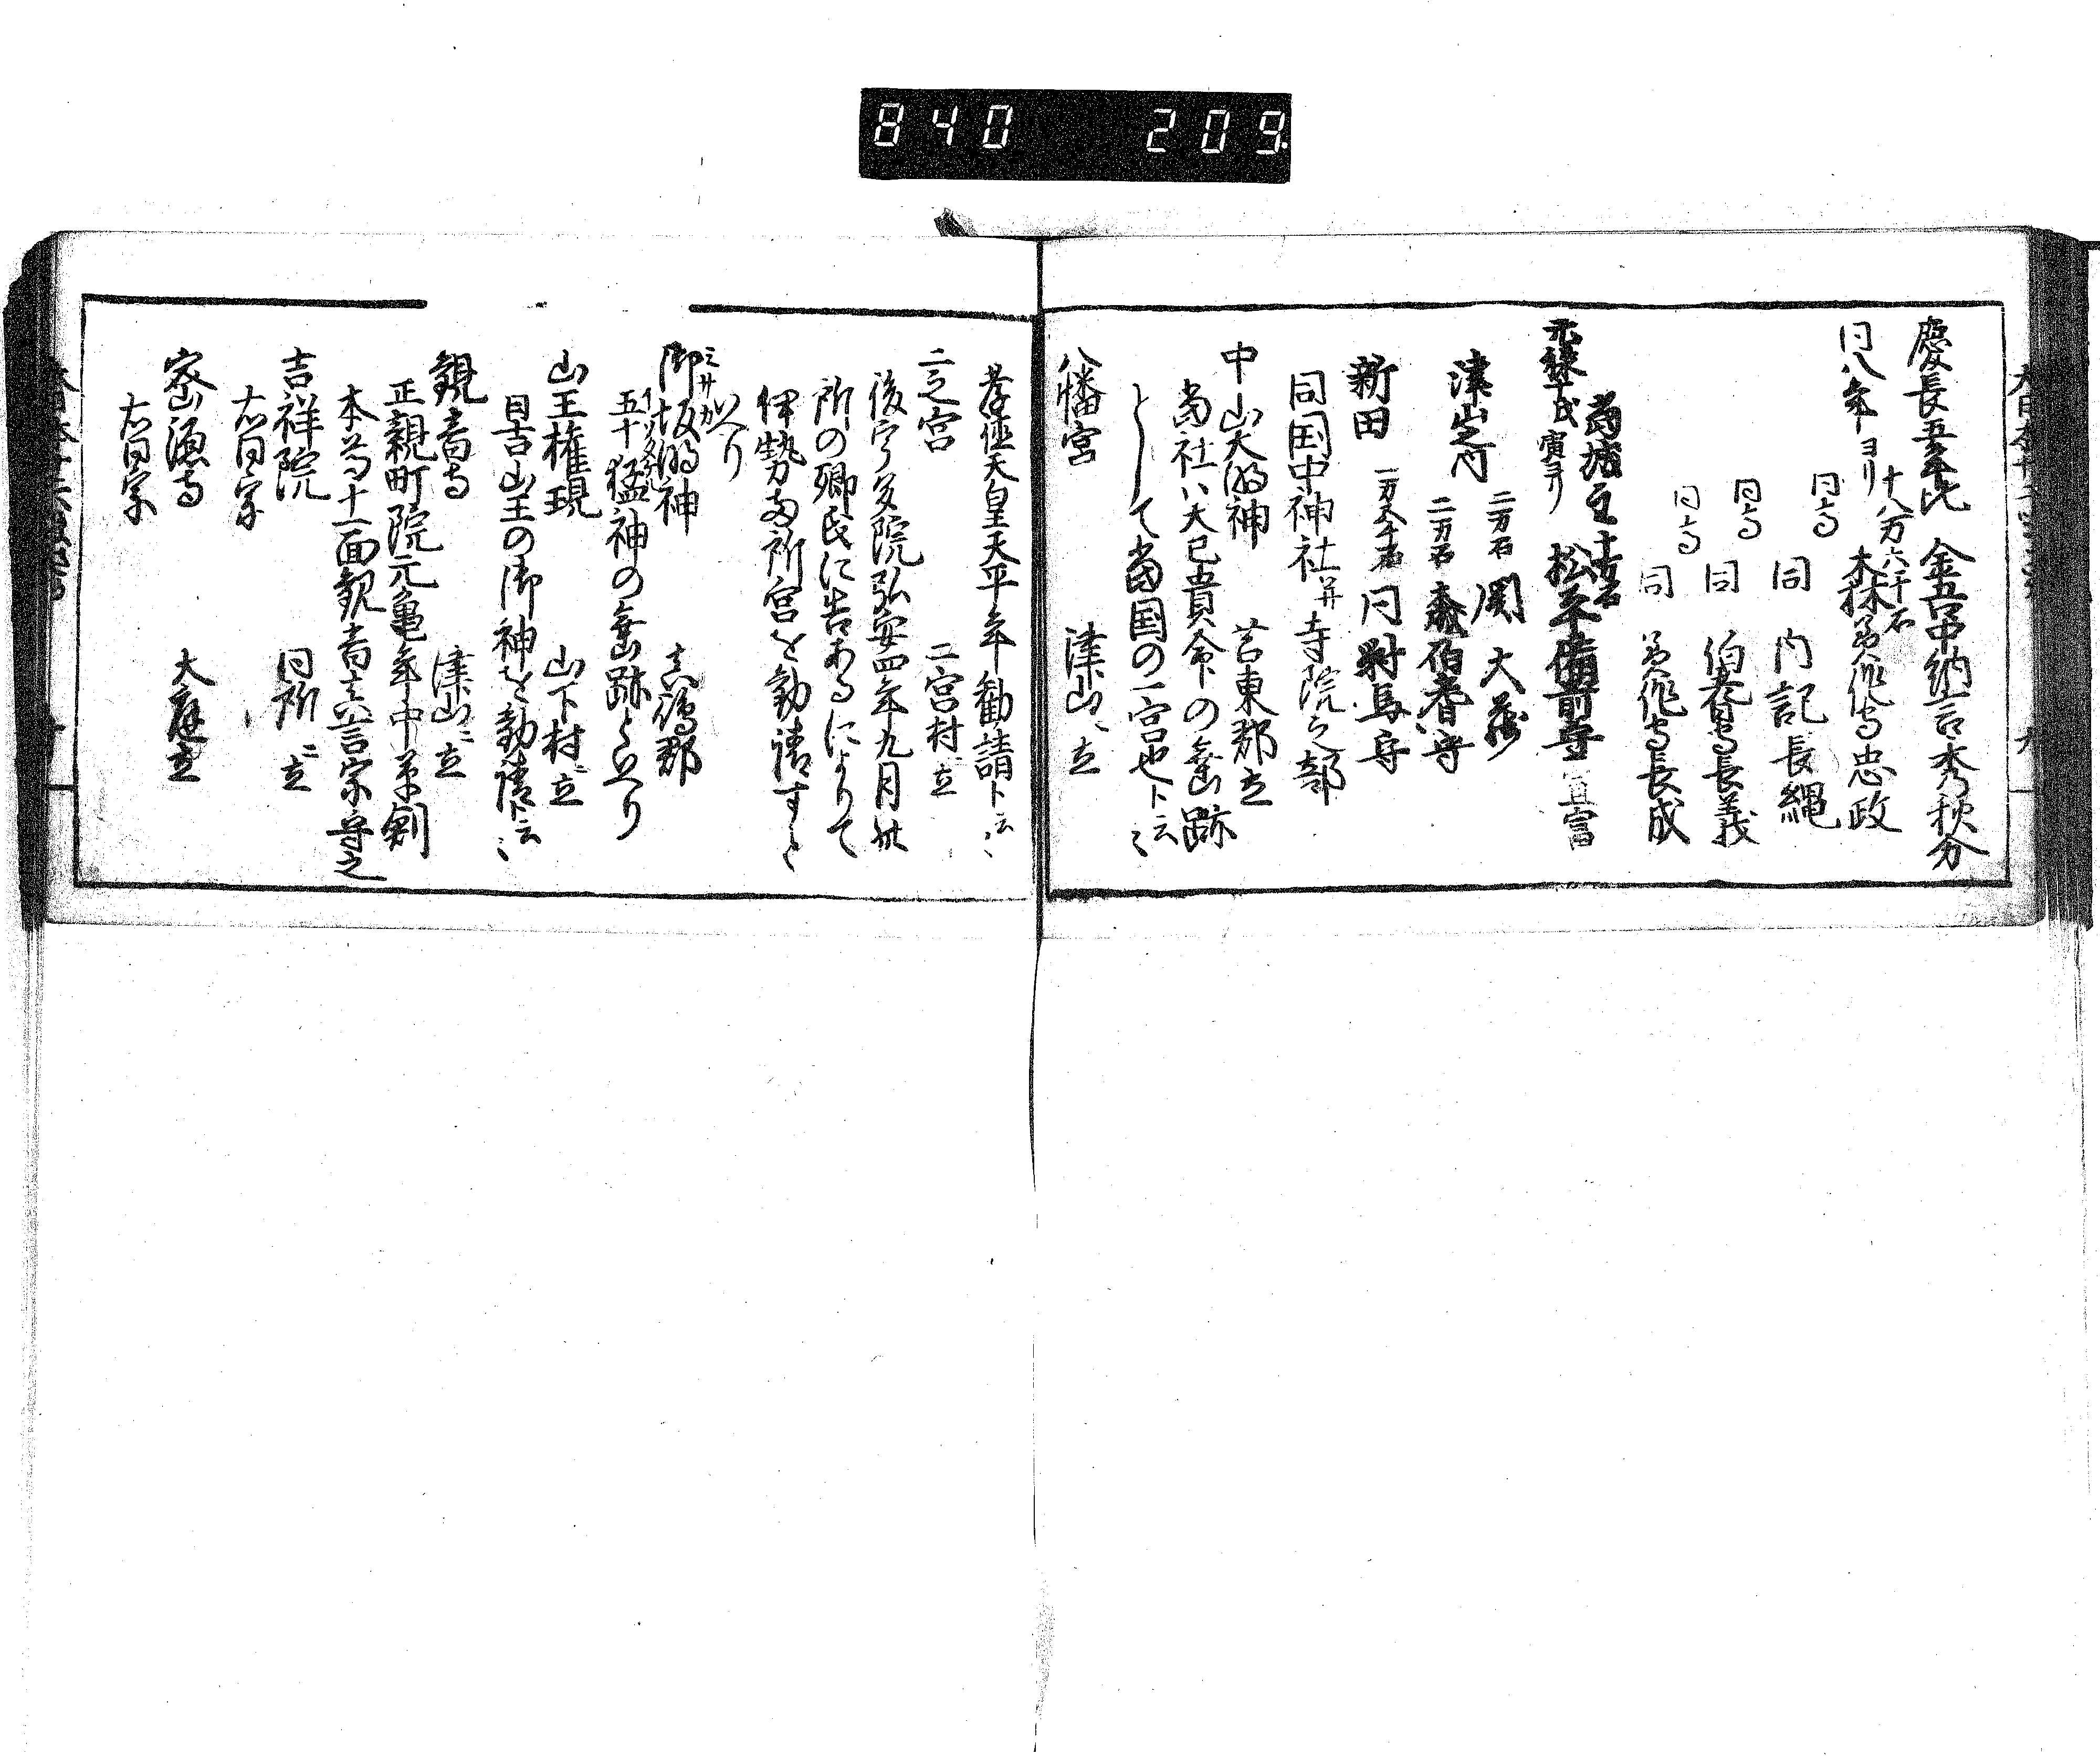 840 209
慶長五年比 金吾中納言秀秋分
同八年ヨリ 十八万六千石 森美作守忠政
同高 同 内記長縄
同高 同 伯耆守長義
同高 同 美作守長成
当城主 十万石
元禄十一戊寅ヨリ 松平備前守 直富
津山之内 二万石 関大蔵
二万石 森伯耆守
新田 一万五千石 同対馬守
同国中神社并寺院之部
中山大明神 苫東郡立
当社ハ大己貴命トの垂跡
として当国の一宮也ト云〻
八幡宮 津山ニ立
孝徳天皇天平年勧請ト云〻
二之宮 二宮村ニ立
後宇多院弘安四年九月此
所の郷民に告あるによりて
伊勢両所宮を勧請すと
いへり
御坂明神 真嶋郡
五十猛神の垂跡といへり
山王権現 山下村ニ立
日吉山王の御神を勧請ト云〻
観音寺 津山ニ立
正親町院元亀年中草創
本尊十一面観音真言宗守之
吉祥院 同所ニ立
右同宗
密漁寺 大庭立
右同宗